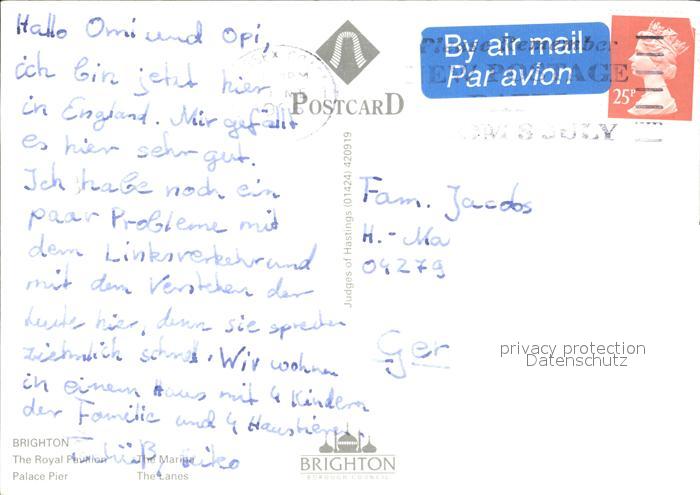 Hallo Omi und Opi,
ich bin jetzt hier
in England. Mir gefällt
es hier sehr gut.
Ich habe noch ein
paar Probleme mit
dem Linksverkehr und
mit dem Verstehen der
Leute hier, denn sie sprechen
ziehmlich schnell. Wir wohnen
in einem Haus mit 4 Kindern
der Familie und 4 Haustieren.
Tschüß,
POSTCARD
By air mail
Par avion
25P
POSTAGE
8 JULY
Judges of Hastings (01424) 420919
Fam. Jacobs
H.-Ma
04279
Ger
privacy protection
Datenschutz
BRIGHTON
The Royal Pavilion The Marina
Palace Pier The Lanes
BRIGHTON
BOROUGH COUNCIL